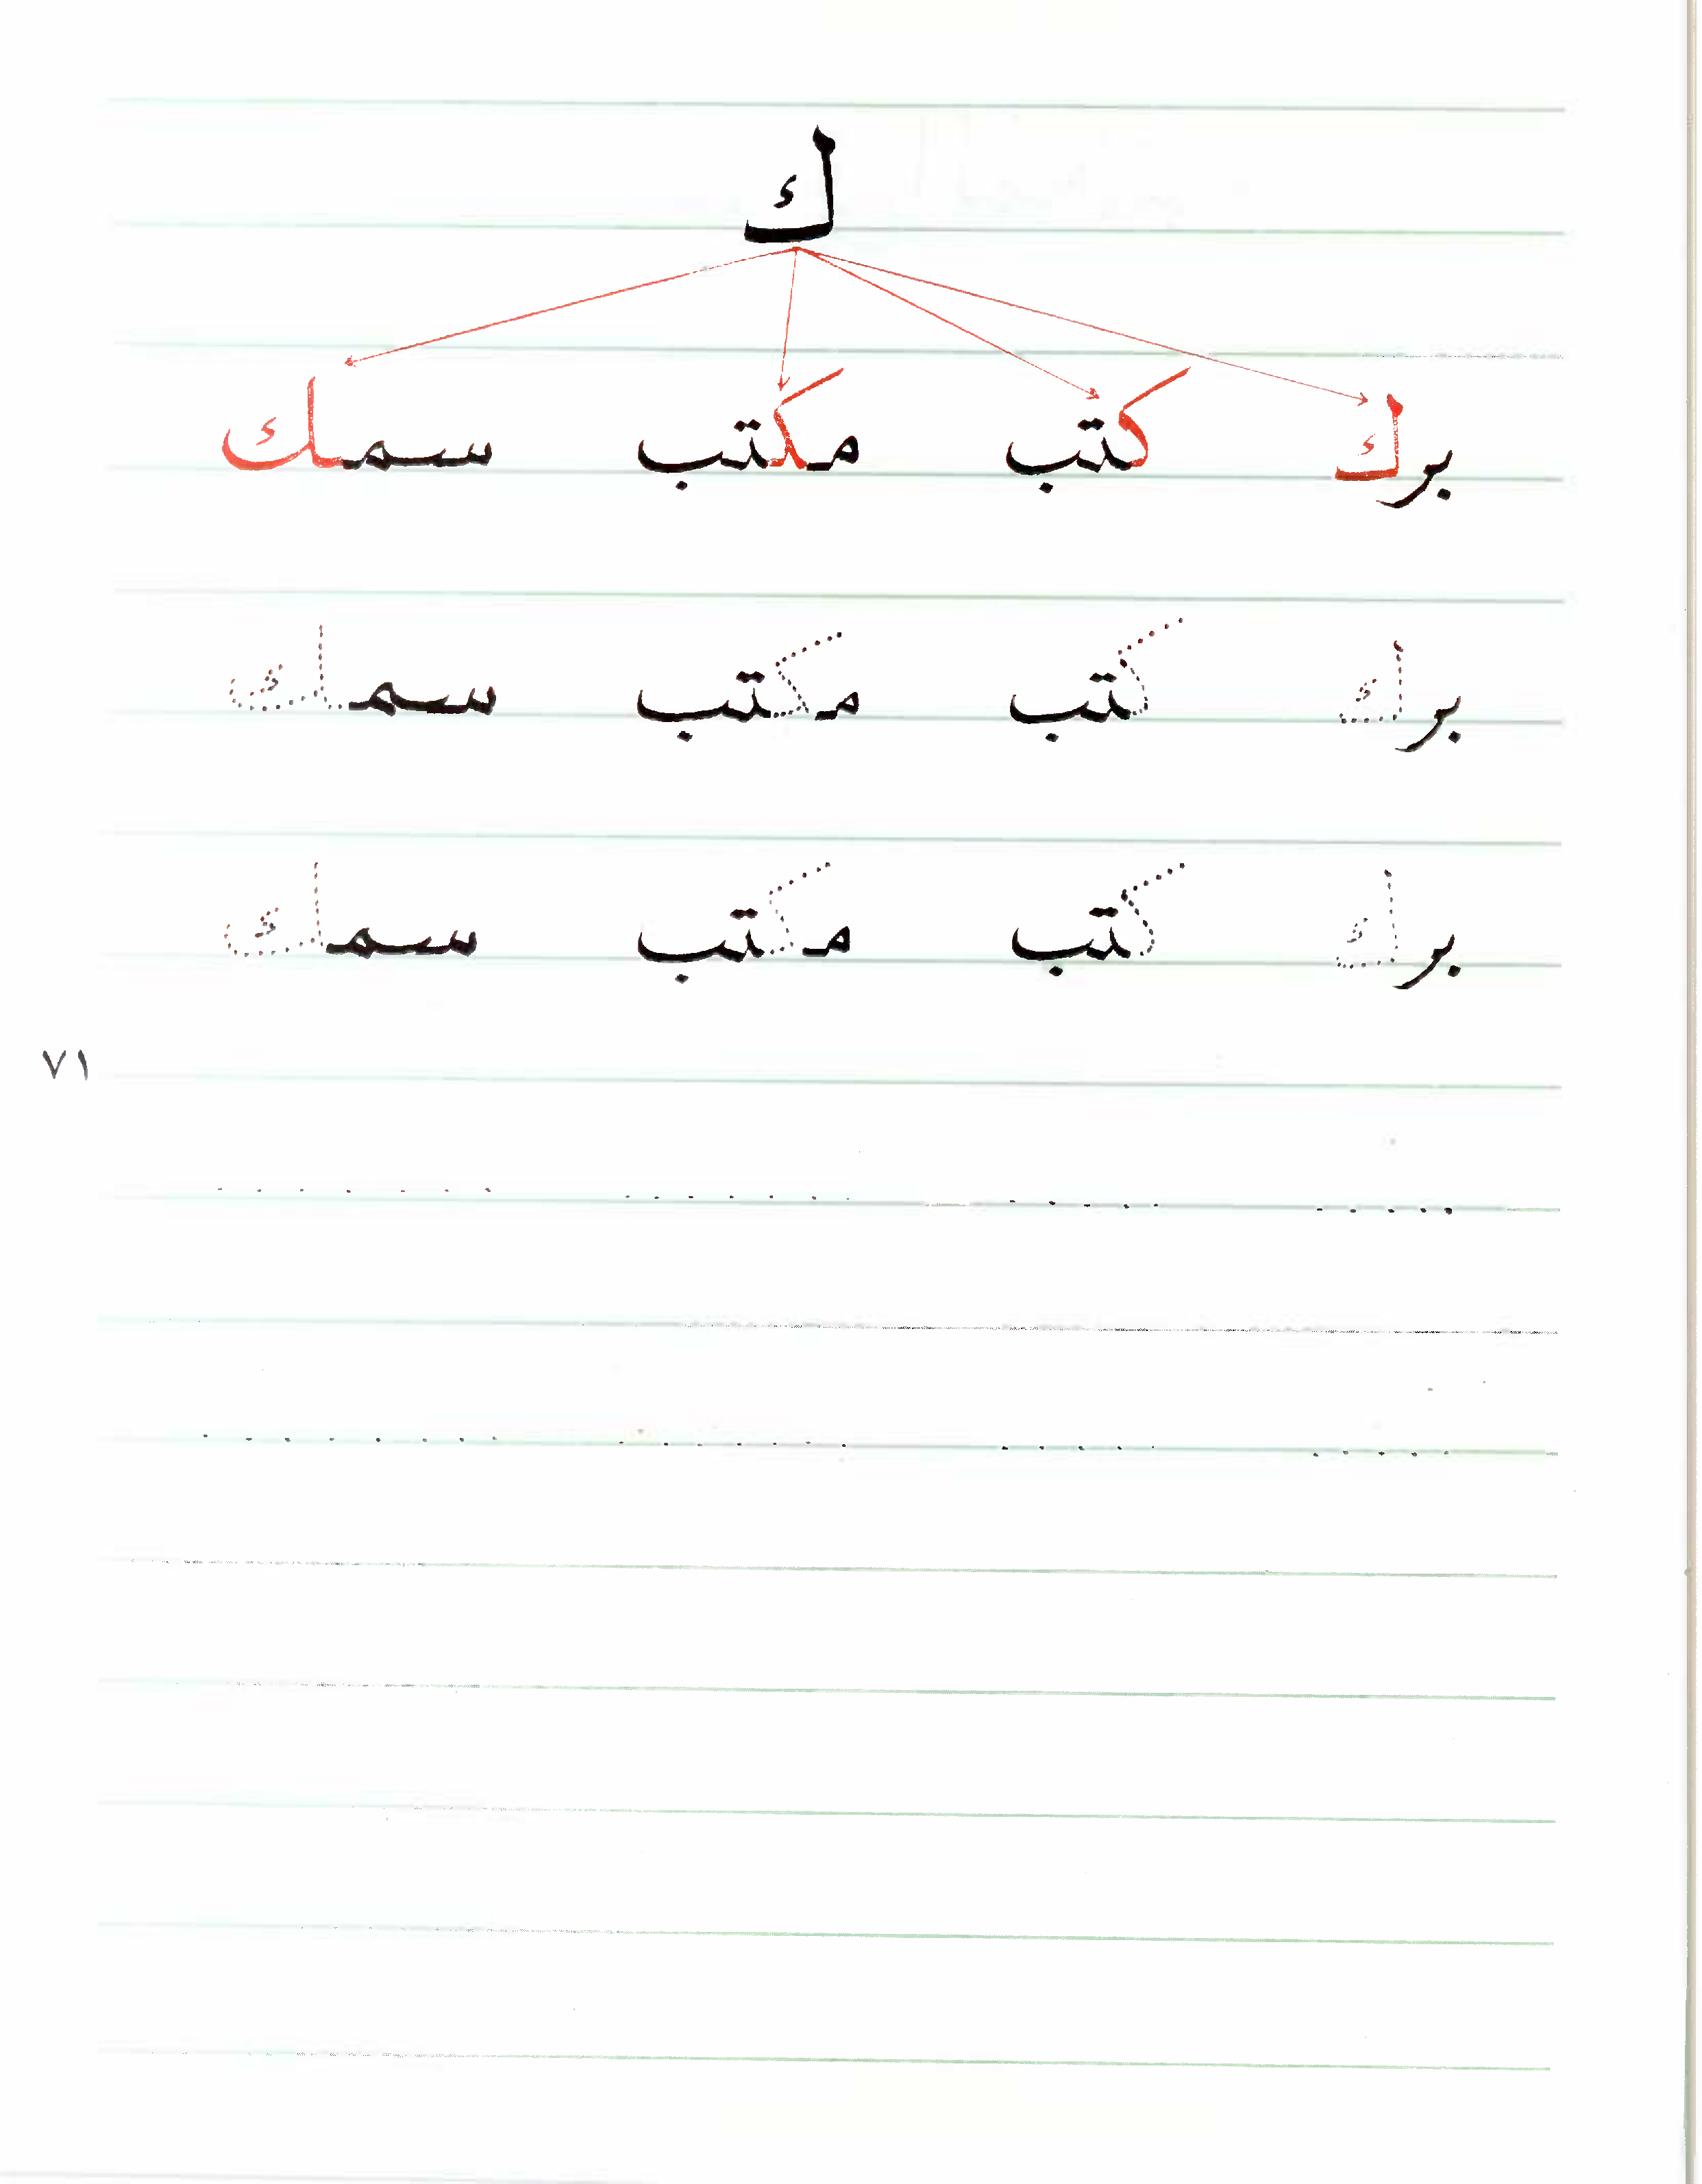 ك
برك كتب مكتب سمك
برك كتب مكتب سمك
برك كتب مكتب سمك
٧١